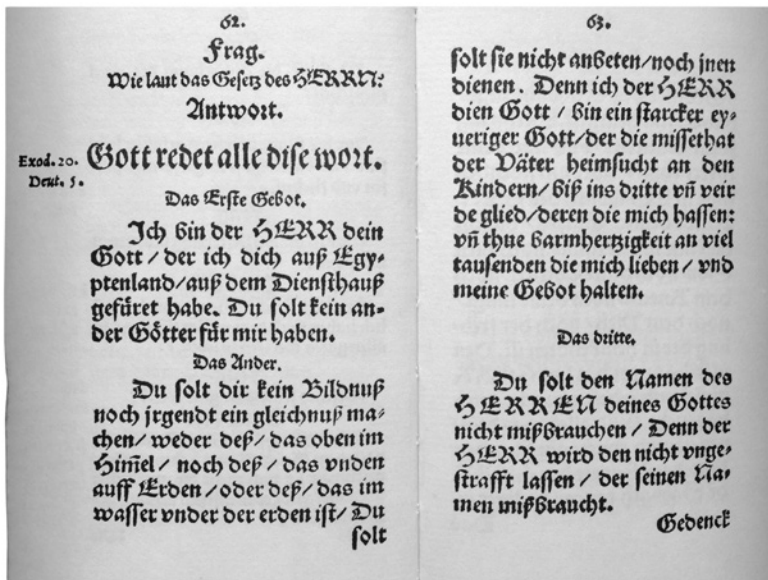 62.
Frag.
Wie laut das Gesetz des HERRN?
Antwort.
Exod. 20.
Deut. 5.
Gott redet alle dise wort.
Das Erste Gebot.
Ich bin der HERR dein
Gott / der ich dich auß Egy-
ptenland / auß dem Diensthauß
gefüret habe. Du solt kein an-
der Götter für mir haben.
Das Ander.
Du solt dir kein Bildnuß
noch jrgendt ein gleichnuß ma-
chen / weder deß / das oben im
Him̄el / noch deß / das vnden
auff Erden / oder deß / das im
wasser vnder der erden ist / Du
solt
63.
solt sie nicht anbeten / noch jnen
dienen. Denn ich der HERR
dien Gott / bin ein starcker ey-
ueriger Gott / der die missethat
der Väter heimsucht an den
Kindern / biß ins dritte vn̄ veir
de glied / deren die mich hassen:
vn̄ thue barmhertzigkeit an viel
tausenden die mich lieben / vnd
meine Gebot halten.
Das dritte.
Du solt den Namen des
HERREN deines Gottes
nicht mißbrauchen / Denn der
HERR wird den nicht vnge-
strafft lassen / der seinen Na-
men mißbraucht.
Gedenck